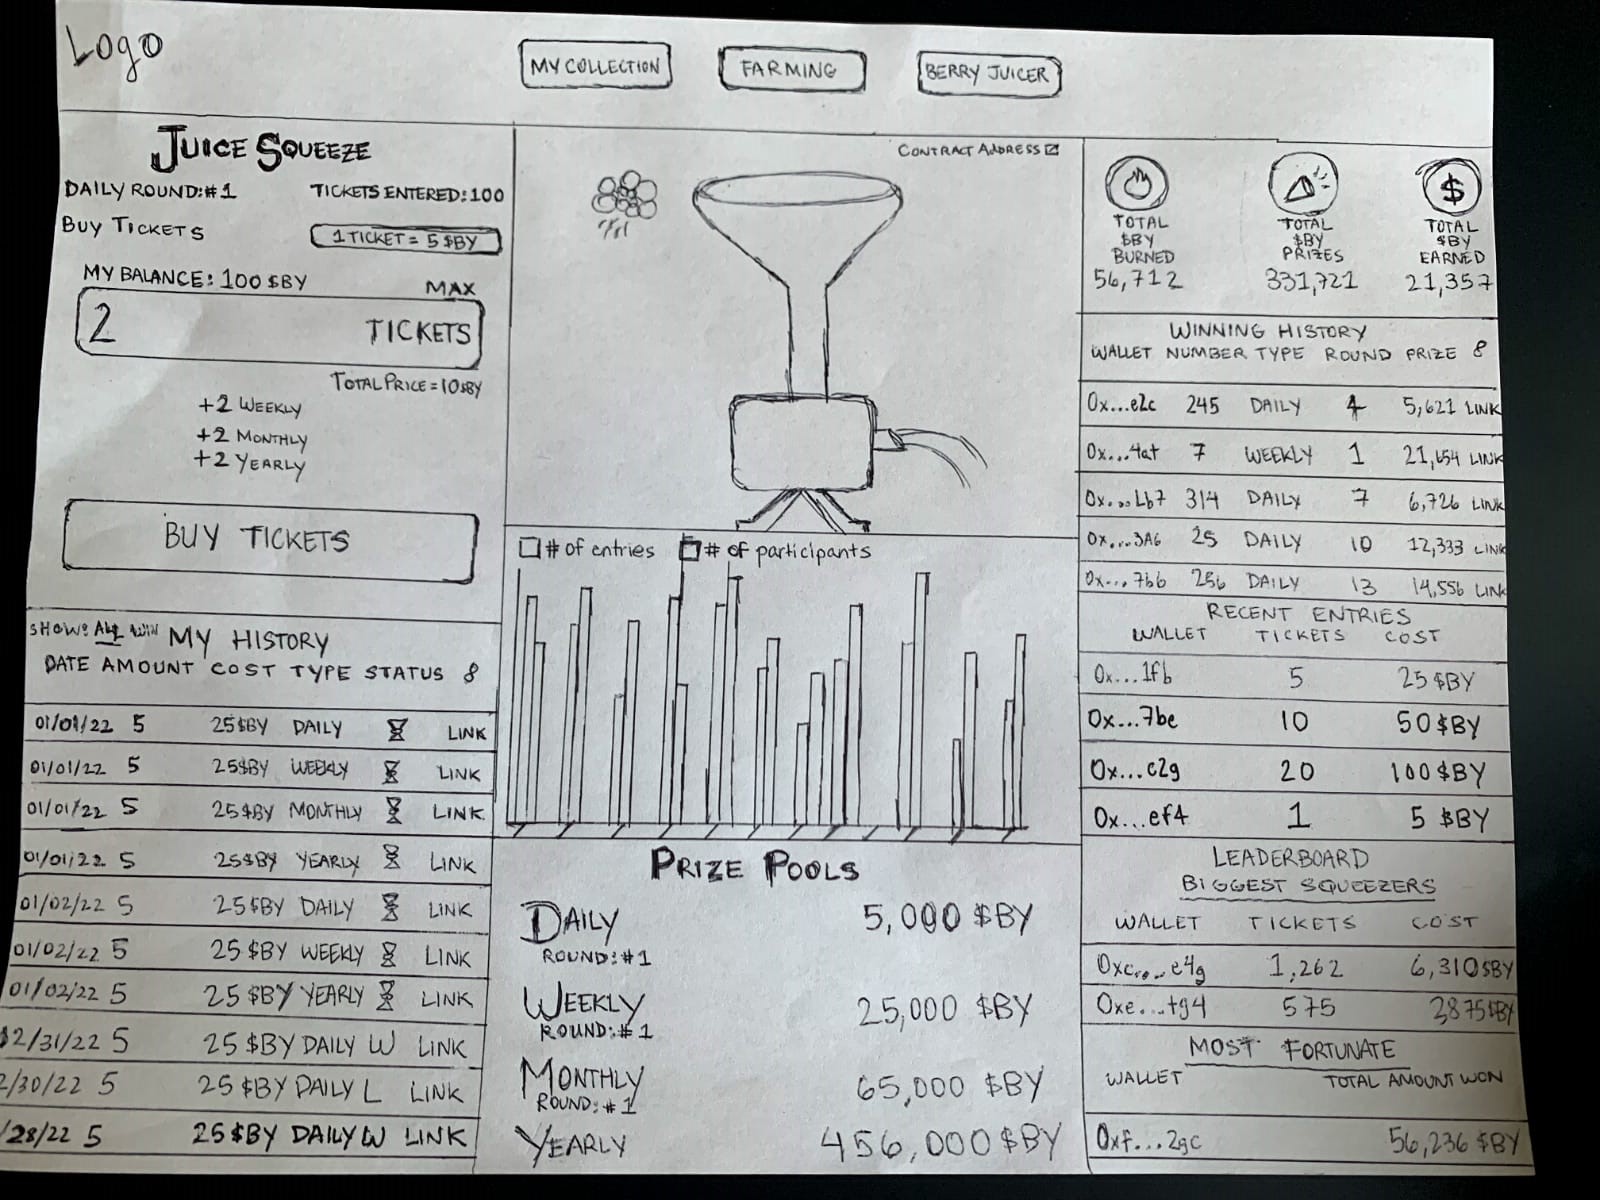 Logo
MY COLLECTION
FARMING
BERRY JUICER
JUICE SQUEEZE
DAILY ROUND:#1 TICKETS ENTERED:100
BUY TICKETS 1 TICKET = 5 $BY
MY BALANCE: 100 $BY MAX
2 TICKETS
TOTAL PRICE = 10$BY
+2 WEEKLY
+2 MONTHLY
+2 YEARLY
BUY TICKETS
SHOW: ALL WIN MY HISTORY
DATE AMOUNT COST TYPE STATUS 8
01/01/22 5 25$BY DAILY LINK
01/01/22 5 25$BY WEEKLY LINK
01/01/22 5 25$BY MONTHLY LINK
01/01/22 5 25$BY YEARLY LINK
01/02/22 5 25$BY DAILY LINK
01/02/22 5 25$BY WEEKLY LINK
01/02/22 5 25$BY YEARLY LINK
12/31/22 5 25$BY DAILY W LINK
2/30/22 5 25$BY DAILY L LINK
/28/22 5 25$BY DAILY W LINK
CONTRACT ADDRESS
# of entries # of participants
PRIZE POOLS
DAILY 5,000 $BY
ROUND:#1
WEEKLY 25,000 $BY
ROUND:#1
MONTHLY 65,000 $BY
ROUND:#1
YEARLY 456,000 $BY
$
TOTAL
$BY
BURNED
56,712
TOTAL
$BY
PRIZES
331,721
TOTAL
$BY
EARNED
21,357
WINNING HISTORY
WALLET NUMBER TYPE ROUND PRIZE 8
0x...e2c 245 DAILY 4 5,621 LINK
0x...4at 7 WEEKLY 1 21,654 LINK
0x...Lb7 314 DAILY 7 6,726 LINK
0x...3A6 25 DAILY 10 12,333 LINK
0x...7b6 256 DAILY 13 14,556 LINK
RECENT ENTRIES
WALLET TICKETS COST
0x...1fb 5 25 $BY
0x...7be 10 50 $BY
0x...c2g 20 100 $BY
0x...ef4 1 5 $BY
LEADERBOARD
BIGGEST SQUEEZERS
WALLET TICKETS COST
0xc....e4g 1,262 6,310$BY
0xe...tg4 575 2875$BY
MOST FORTUNATE
WALLET TOTAL AMOUNT WON
0xf...2gc 56,236 $BY